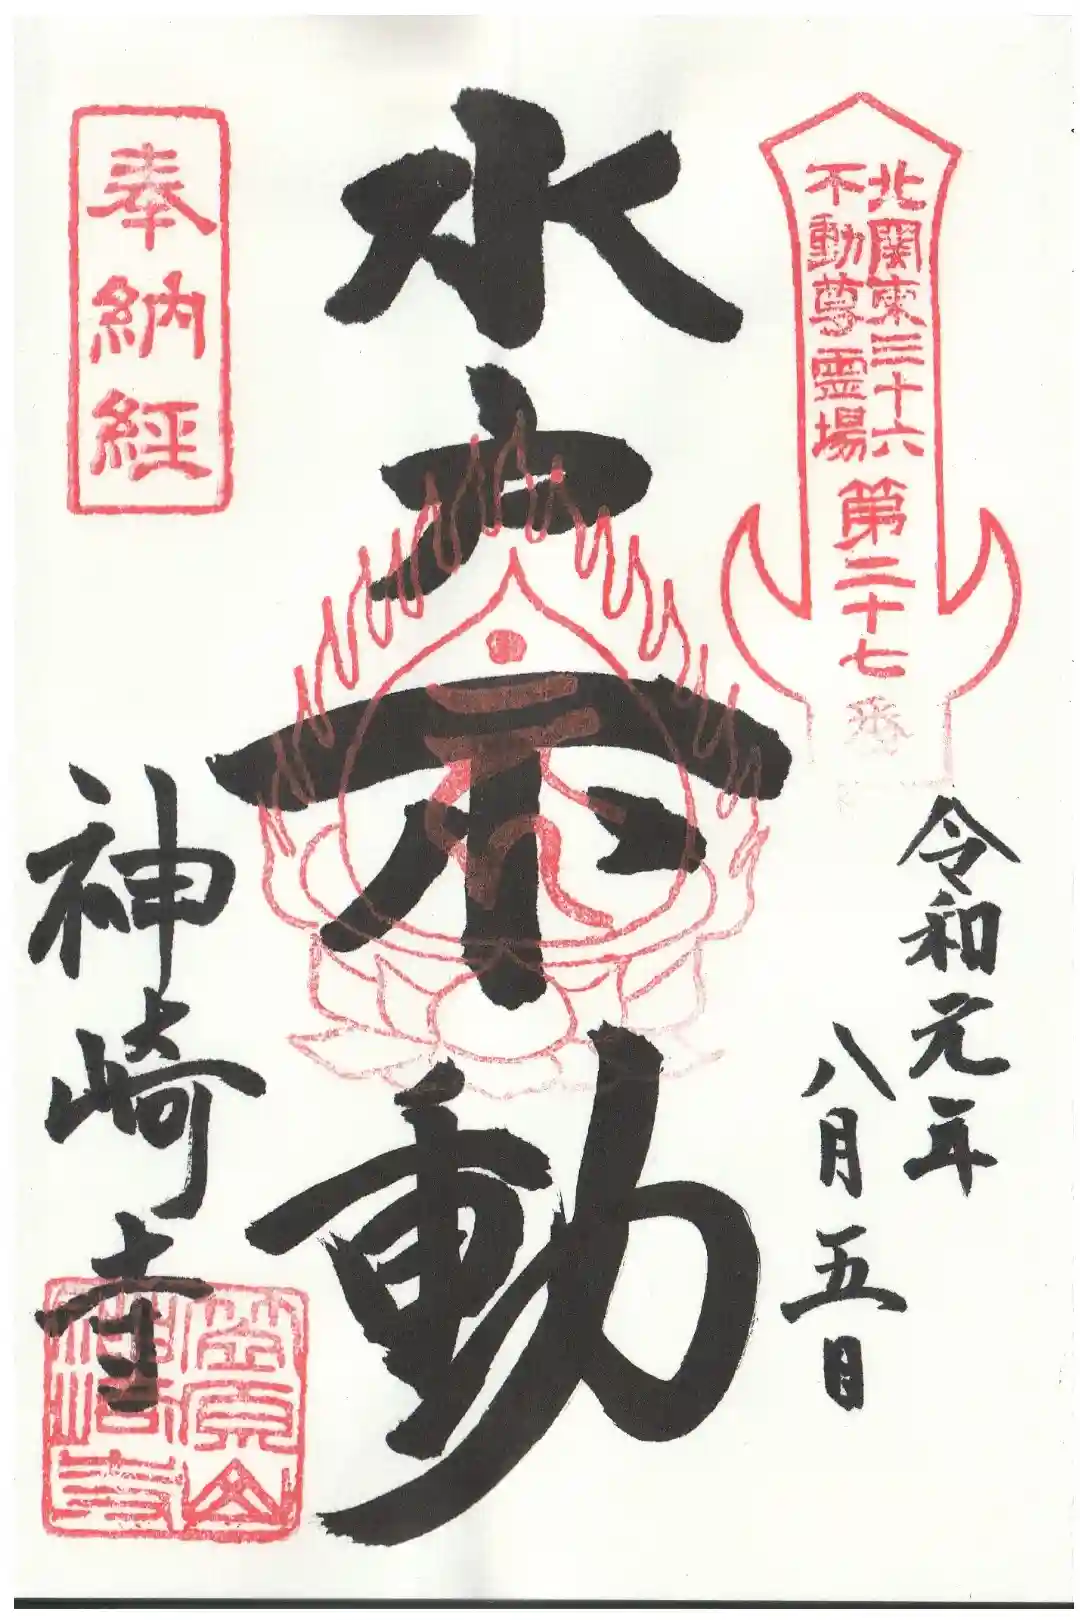 北関東三十六
不動尊霊場
第二十七番
令和元年
八月五日
水戸不動
奉納経
神崎寺